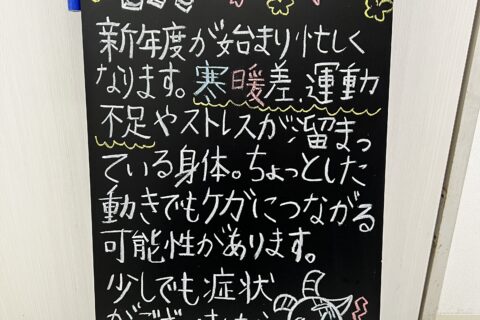 新年度が始まり忙しく
なります。寒暖差、運動
不足やストレスが溜まっ
ている身体。ちょっとした
動きでもケガにつながる
可能性があります。
少しでも症状